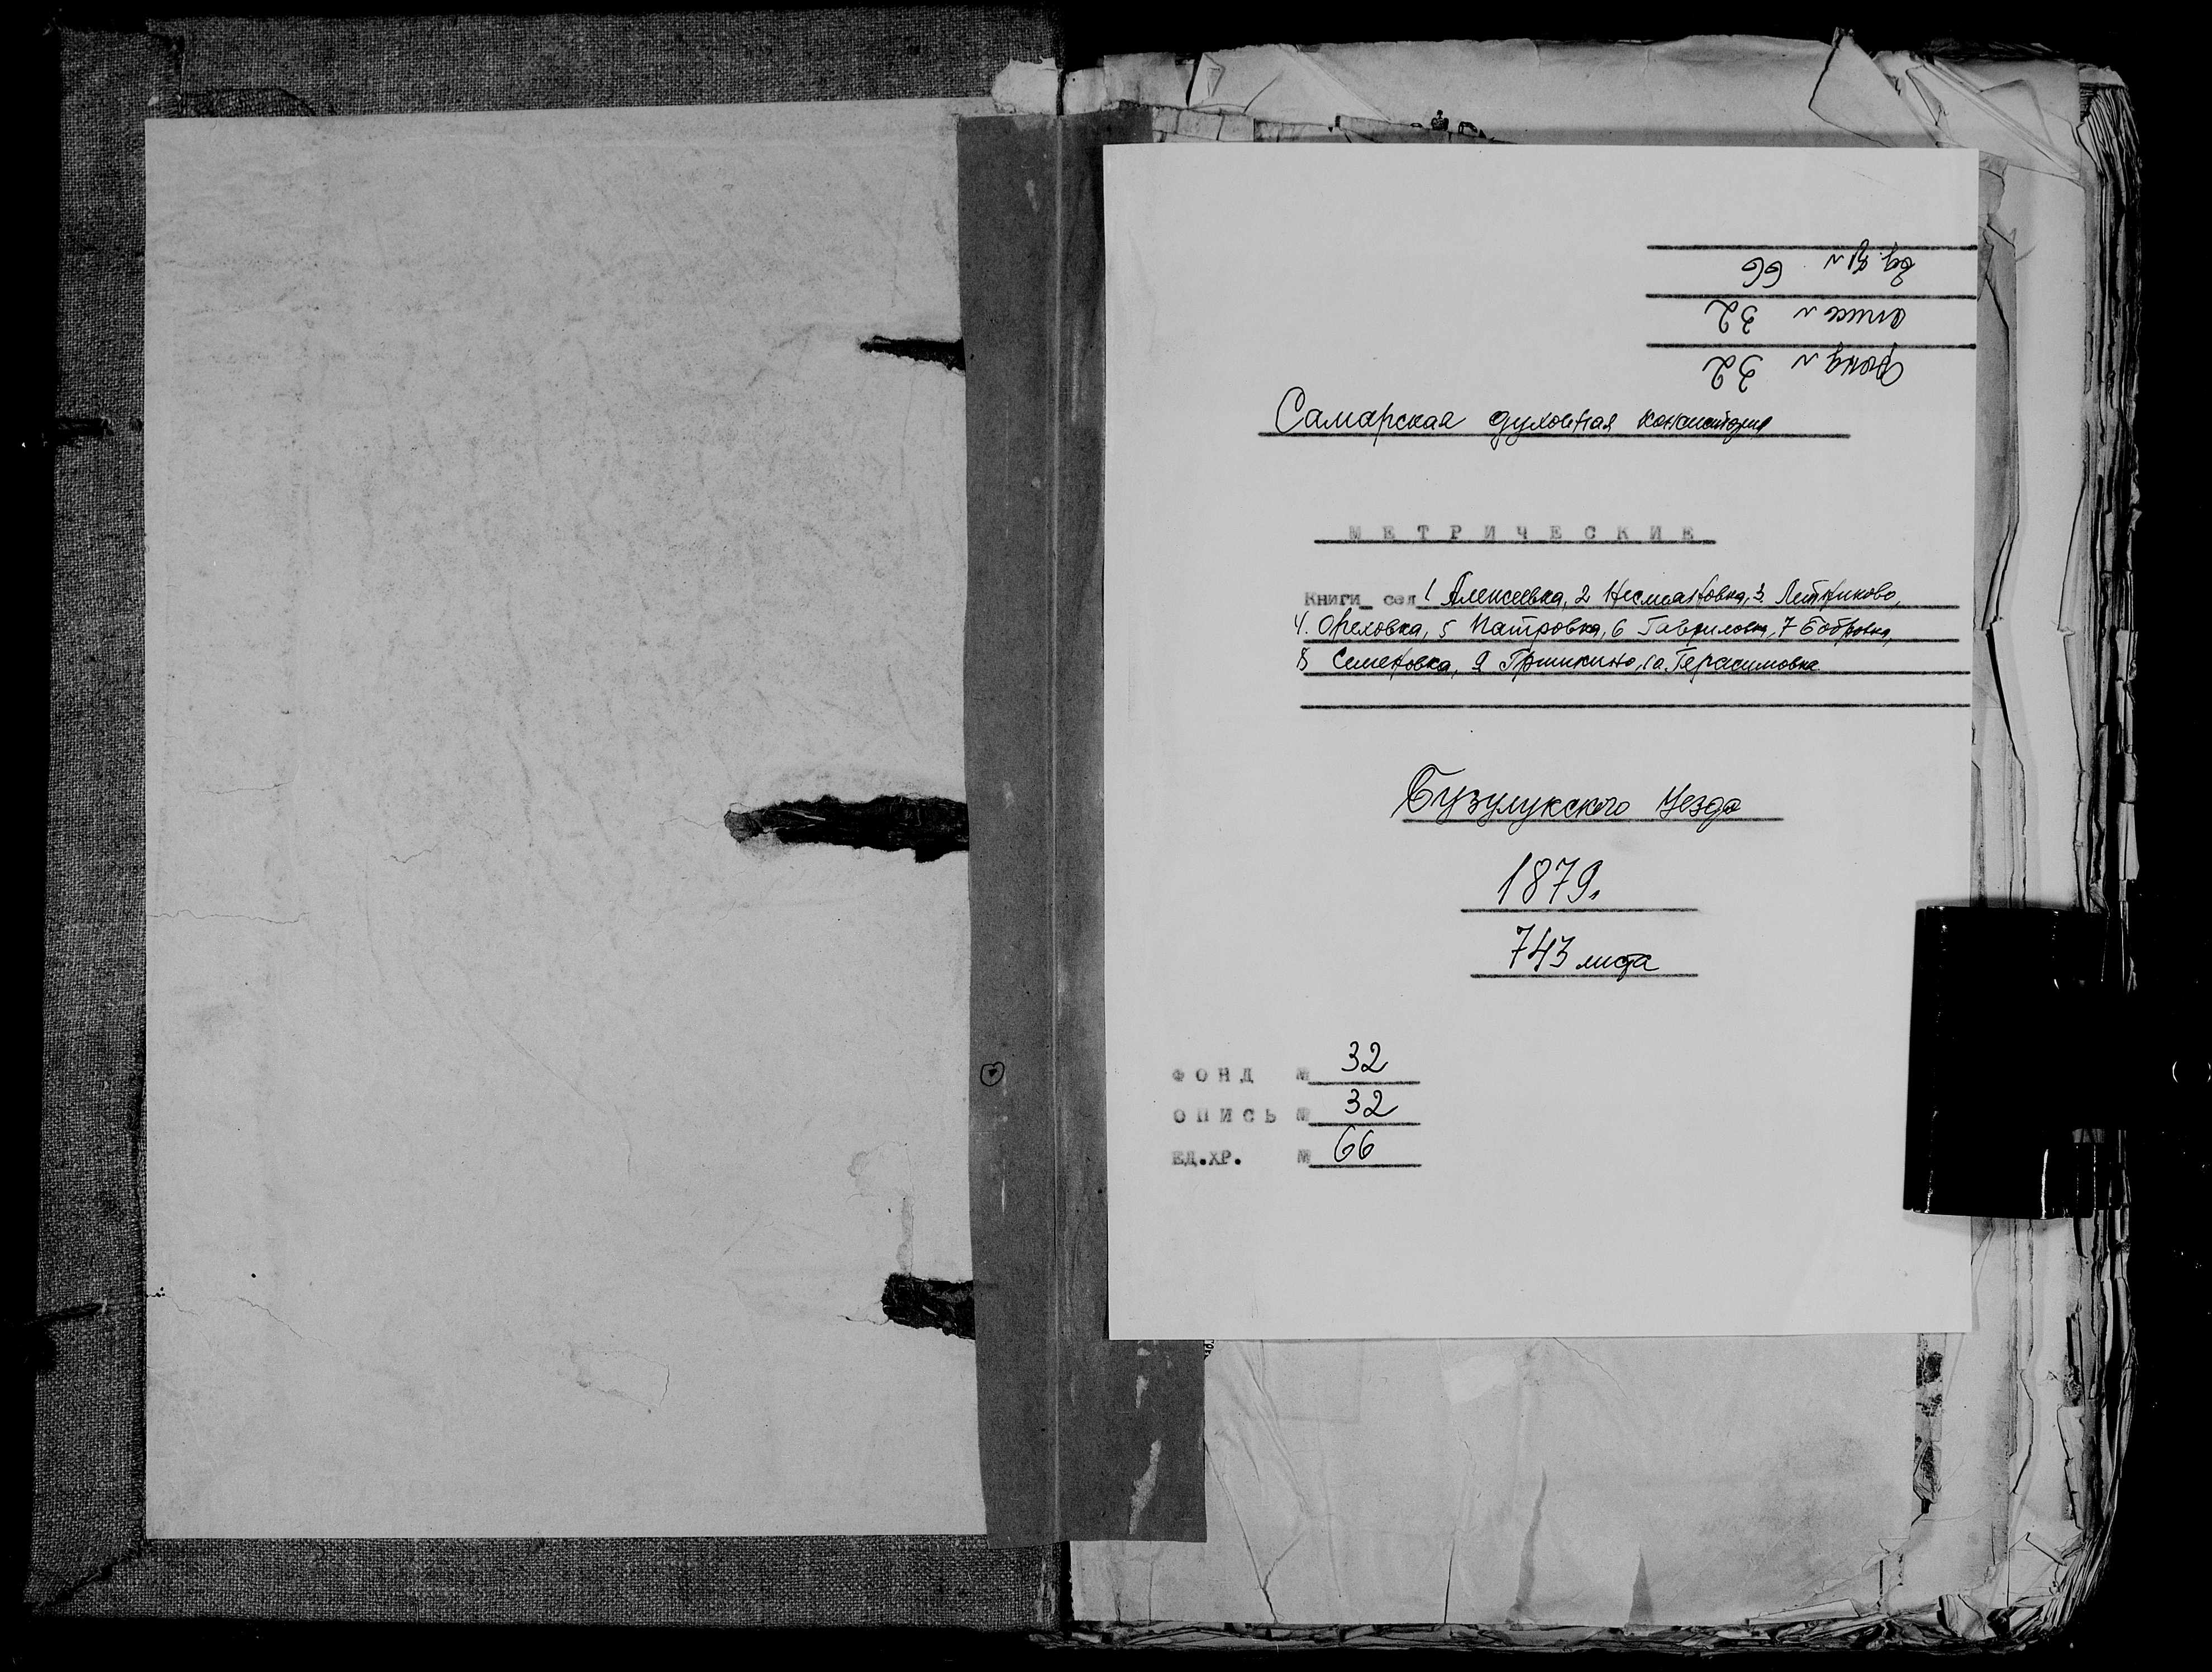 фонд № 32
опись № 32
ед. хр № 66
Самарская духовная консистория
МЕТРИЧЕСКИЕ
Книги сел 1 Алексеевка, 2 Несмеяновка, 3. Летниково,
4. Ореховка, 5 Патровка, 6 Гавриловка, 7 Бобровка,
8 Семеновка, 9 Гришкино, 10. Герасимовка
Бузулукского уезда
1879г
743 листа
ФОНД № 32
ОПИСЬ № 32
ЕД.ХР. № 66